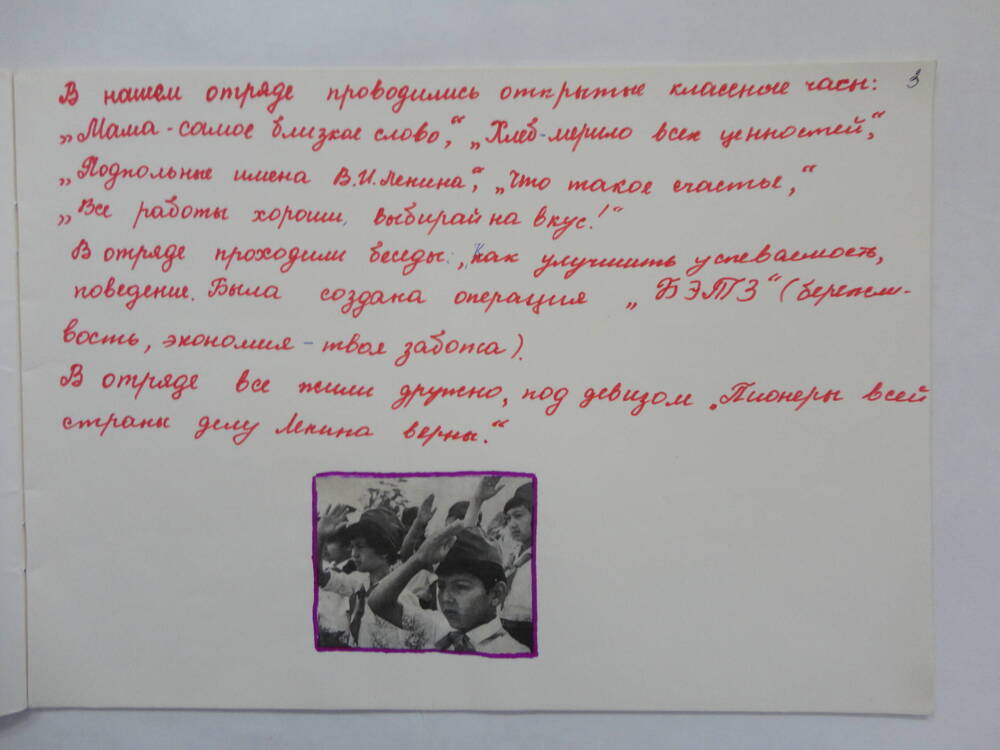 3
В нашем отряде проводились открытые классные часы:
„Мама - самое близкое слово“, „Хлеб - мерило всех ценностей“,
„Подпольные имена В.И. Ленина“, „Что такое счастье“,
„Все работы хороши, выбирай на вкус!“
В отряде проходили беседы: „Как улучшить успеваемость,
поведение. Была создана операция „БЭТЗ“ (бережли-
вость, экономия - твоя забота).
В отряде все жили дружно, под девизом „Пионеры всей
страны делу Ленина верны.“